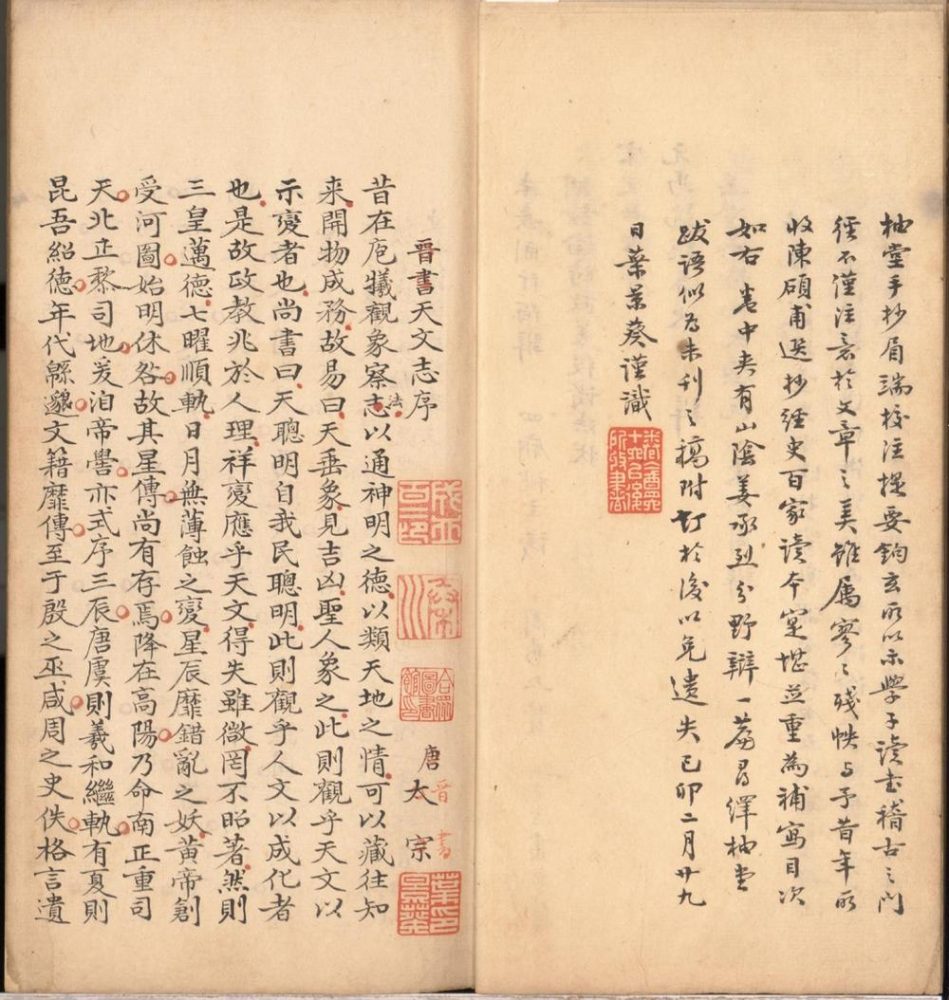 柚堂手抄眉端校注提要鈎玄所以示學子讀書稽古之門
徑不僅注意於文章之美雖屬寥寥殘帙與予昔年所
收陳碩甫選抄經史百家读本寔堪並重為補寫目次
如右卷中夾有山陰姜承烈分野辯一篇尋繹柚堂
跋語似為未刊之稿附訂於後以免遺失己卯二月廿九
日葉景葵謹識
晉書天文志序
唐太宗
晉書
昔在庖犧觀象察志以通神明之德以類天地之情可以藏往知
法
来開物成務故易曰天垂象見吉凶聖人象之此則觀乎天文以
示變者也尚書曰天聰明自我民聰明此則觀乎人文以成化者
也是故政教兆於人理祥變應乎天文得失雖微罔不昭著然則
三皇邁德七曜順軌日月無薄蝕之變星辰靡錯亂之妖黄帝創
受河圖始明休咎故其星傳尚有存焉降在高陽乃命南正重司
天北正黎司地爰洎帝嚳亦式序三辰唐虞則羲和繼軌有夏則
昆吾紹德年代緜邈文籍靡傳至于殷之巫咸周之史佚格言遺
葉印景葵